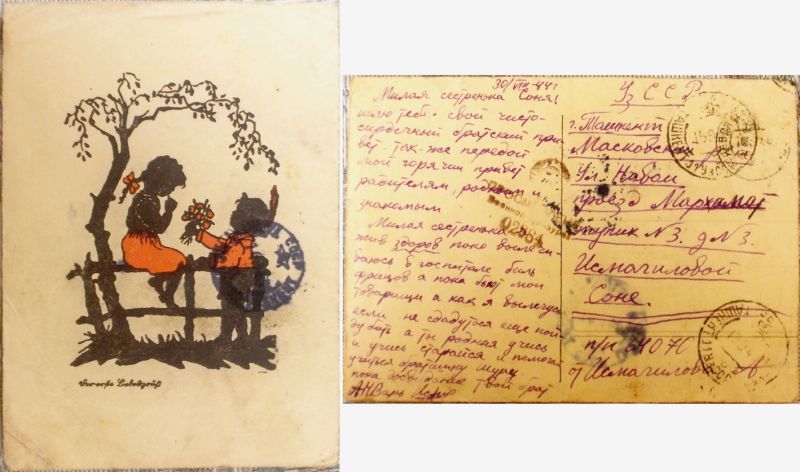 Der erste Liebesgruß
30/VIII-44 г
Милая сестренька Соня!
шлю тебе свой чисто-
сердечный братский при
вет. так-же передой
мой горячий привет
родителям, родным и
знакомым
Милая сестренька я
жив здоров пока
в госпитале бил
фрицов а пока бьют мои
товарищи а как я вылечусь
если не сдадуться еще пой
бубить а ты родная учись
и учись старайся и помогай
учиться братишку
пока досвиданье твой брат
Анварь
УзССР
г. Ташкент
Масковской
ул. Навои
проезд Мархамат
тупик N3. д N3.
Исмагиловой
Соне.
п/п 64074
от Исмагилова А
02984